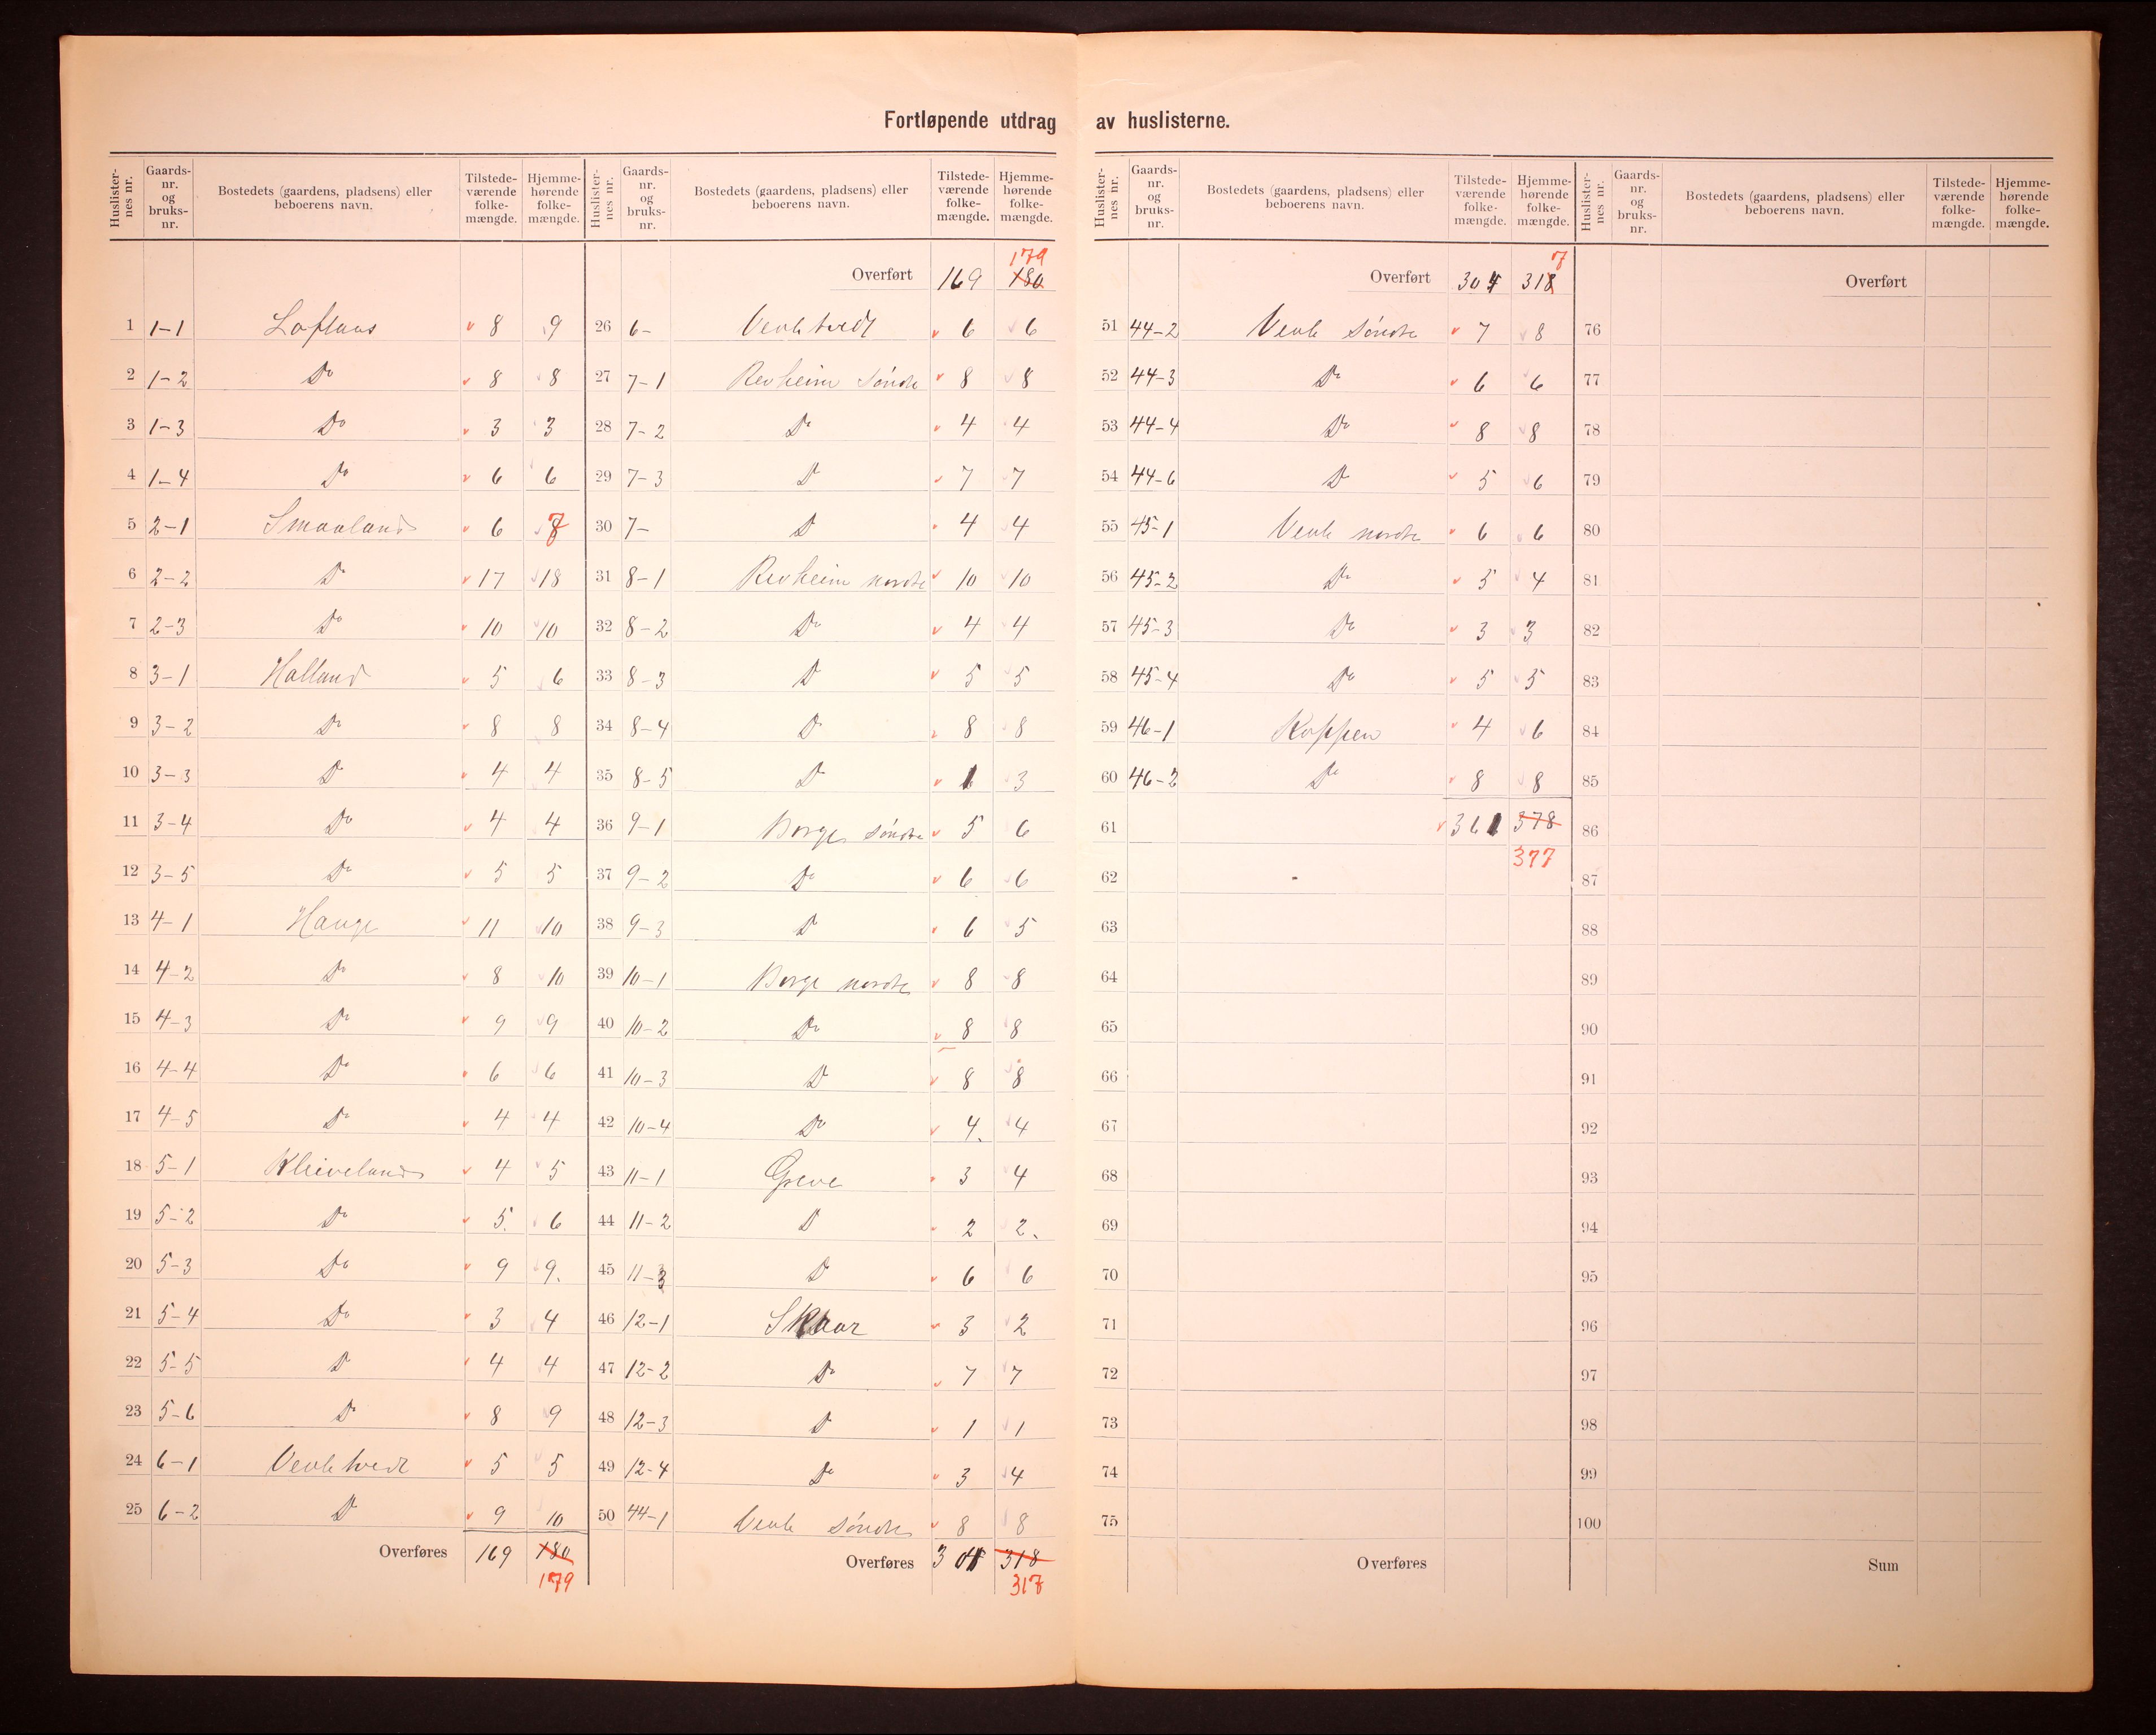 Fortløpende utdrag av huslisterne.
Huslister-nes nr. | Gaards-nr. og bruks-nr. | Bostedets (gaardens, pladsens) eller beboerens navn. | Tilstede-værende folke-mængde. | Hjemme-hørende folke-mængde.
1 1-1 Loflaas 8 9
2 1-2 Do 8 8
3 1-3 Do 3 3
4 1-4 Do 6 6
5 2-1 Smaaland 6 7
6 2-2 Do 17 18
7 2-3 Do 10 10
8 3-1 Holland 5 6
9 3-2 Do 8 8
10 3-3 D 4 4
11 3-4 Do 4 4
12 3-5 Do 5 5
13 4-1 Hauge 11 10
14 4-2 Do 8 10
15 4-3 Do 9 9
16 4-4 Do 6 6
17 4-5 Do 4 4
18 5-1 Kleiveland 4 5
19 5-2 Do 5. 6
20 5-3 Do 9 9.
21 5-4 Do 3 4
22 5-5 D 4 4
23 5-6 D 8 9
24 6-1 Venletvedt 5 5
25 6-2 D 9 10
Overføres 169 180
179
Huslister-nes nr. | Gaards-nr. og bruks-nr. | Bostedets (gaardens, pladsens) eller beboerens navn. | Tilstede-værende folke-mængde. | Hjemme-hørende folke-mængde.
179
Overført 169 180
26 6- Venletvedt 6 6
27 7-1 Revheim søndre 8 8
28 7-2 Do 4 4
29 7-3 D 7 7
30 7- D 4 4
31 8-1 Revheim nordre 10 10
32 8-2 Do 4 4
33 8-3 D 5 5
34 8-4 D 8 8
35 8-5 D 1 3
36 9-1 Borge søndre 5 6
37 9-2 Do 6 6
38 9-3 D 6 5
39 10-1 Borge nordre 8 8
40 10-2 Do 8 8
41 10-3 D 8 8
42 10-4 Do 4. 4
43 11-1 Greve 3 4
44 11-2 D 2 2.
45 11-3 D 6 6
46 12-1 Skaar 3 2
47 12-2 Do 7 7
48 12-3 D 1 1
49 12-4 Do 3 4
50 44-1 Venle søndre 8 8
Overføres 304 318
317
Huslister-nes nr. | Gaards-nr. og bruks-nr. | Bostedets (gaardens, pladsens) eller beboerens navn. | Tilstede-værende folke-mængde. | Hjemme-hørende folke-mængde.
7
Overført 304 318
51 44-2 Venle søndre 7 8
52 44-3 Do 6 6
53 44-4 Do 8 8
54 44-6 D 5 6
55 45-1 Venle nordre 6 6
56 45-2 Do 5 4
57 45-3 Do 3 3
58 45-4 Do 5 5
59 46-1 Koppen 4 6
60 46-2 Do 8 8
61 361 378
377
62
63
64
65
66
67
68
69
70
71
72
73
74
75
Overføres
Huslister-nes nr. | Gaards-nr. og bruks-nr. | Bostedets (gaardens, pladsens) eller beboerens navn. | Tilstede-værende folke-mængde. | Hjemme-hørende folke-mængde.
Overført
76
77
78
79
80
81
82
83
84
85
86
87
88
89
90
91
92
93
94
95
96
97
98
99
100
Sum